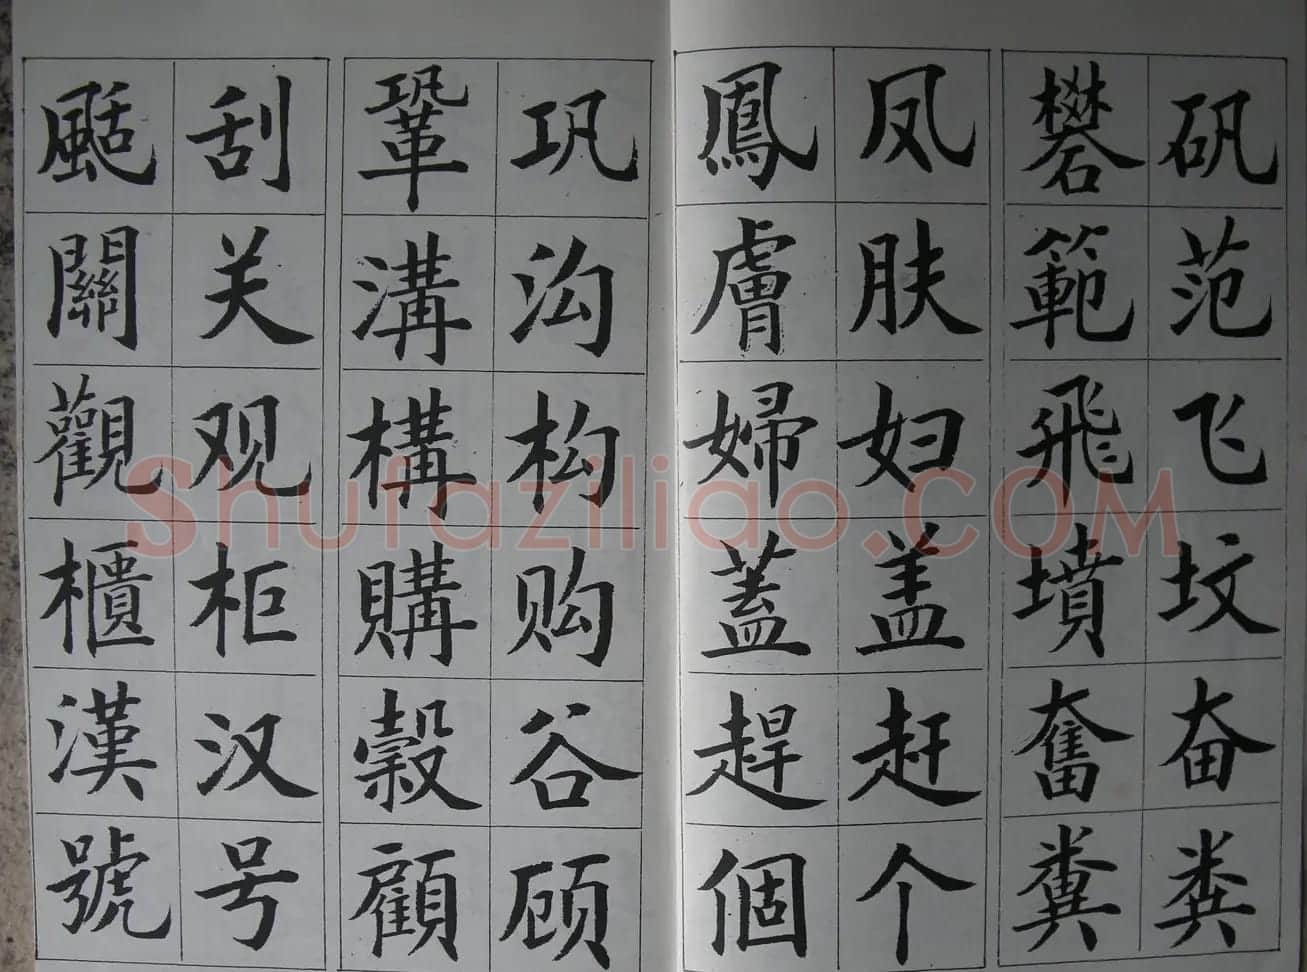 矾范飞坟奋粪
礬範飛墳奮糞
凤肤妇盖赶个
鳳膚婦蓋趕個
巩沟构购谷顾
鞏溝構購穀顧
刮关观柜汉号
颳關觀櫃漢號
Shufaziliao.COM